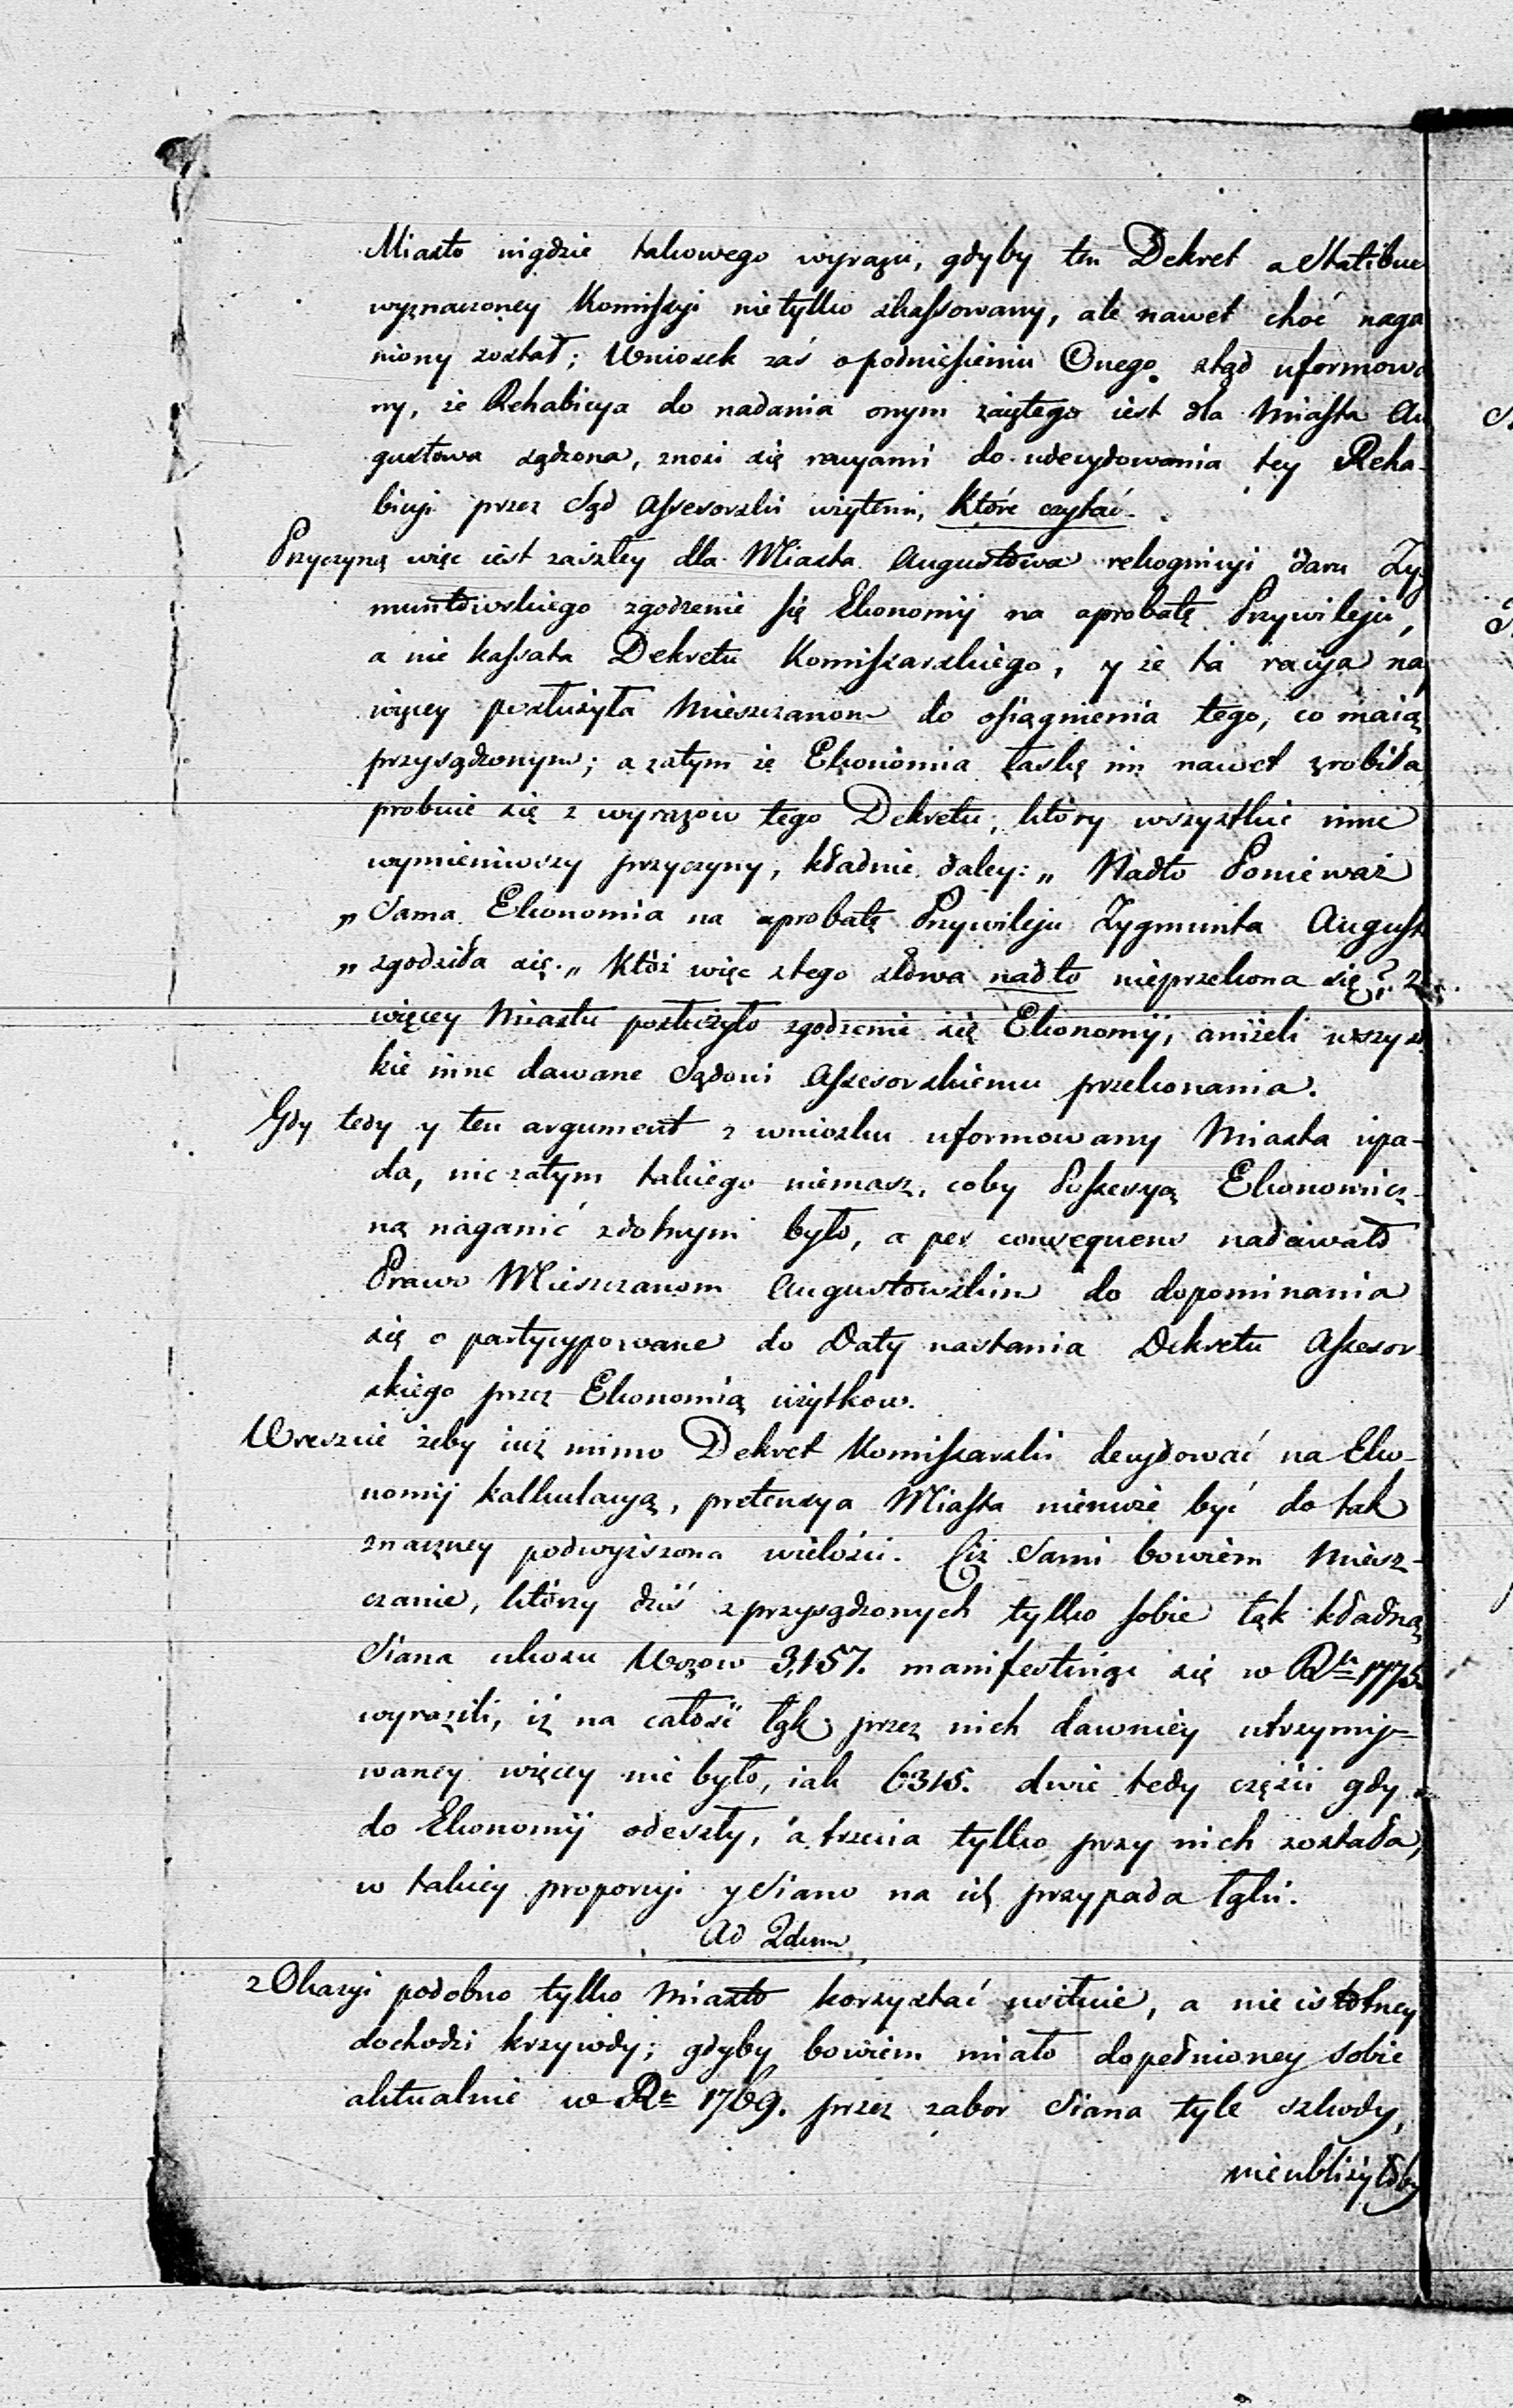 Miasto nigdzie takowego wyrazu, gdyby ten Dekret a Statibus
wyznaczoney Komissyi nie tylko skassowany, ale nawet choć naga
niony został; Wniosek zaś o podniesieniu Onego, ztąd uformowa
ny, że Rehabicya do nadania onym zaiętego iest dla Miasta Au
gustowa sądzona, znosi się racyami do udecydowania tey Reha-
bicyi przez Sąd Assesorski użytemi, które czytać.
Przyczyną więc iest zaszłey dla Miasta Augustowa rekognicyi daru Zyg
muntowskiego zgodzenie się Ekonomij na aprobatę Przywileju,
a nie kassata Dekretu Komissarskiego, y że ta racya nay
więcey posłużyła Mieszczanom do osiągnienia tego, co maią
przysądzonym; a zatym że Ekonomia łaskę im nawet zrobiła
probuie się z wyrazow tego Dekretu, ktory wszystkie inne
wymieniwszy przyczyny, kładnie daley: „ Nadto Ponieważ
„ Sama Ekonomia na aprobatę Przywileju Zygmunta August
„ zgodziła się. „ Ktoż więc z tego słowa nadto nieprzekona się? że
więcey Miastu posłużyło zgodzenie się Ekonomij, aniżeli wszyst
kie inne dawane Sądowi Assesorskiemu przekonania.
Gdy tedy y ten argument z wniosku uformowany Miasta upa-
da, nic zatym takiego niemasz, coby Possesyą Ekonomicz-
ną naganić zdolnym było, a per consequens nadawało
Prawo Mieszczanom Augustowskim do dopominania
się o partycypowane do Daty nastania Dekretu Assesor-
skiego przez Ekonomią użytkow.
Wreszcie żeby iuż mimo Dekret Komissarski decydować na Eko-
nomij kalkulacyą, pretensya Miasta niemoże być do tak
znaczney podwyższona wielości. Ciż Sami bowiem Miesz-
czanie, ktorzy dziś z przysądzonych tylko sobie łąk kładną
Siana ukosu Wozow 3,157. manifestuiąc się w Rku 1775.
wyrazili, iż na całość łąk przez nich dawniey utrzymy-
waney więcey nie było, iak 6315. dwie tedy części gdy
do Ekonomij odeszły, a trzecia tylko przy nich została,
w takiey proporcyi y Siano na ich przypada łąki.
Ad 2dum
z Okazyi podobno tylko Miasto korzystać usiłuie, a nie istotney
dochodzi krzywdy; gdyby bowiem miało dopełnioney sobie
aktualnie w Rku 1769. przez zabor Siana tyle szkody,
nieubliżyłoby